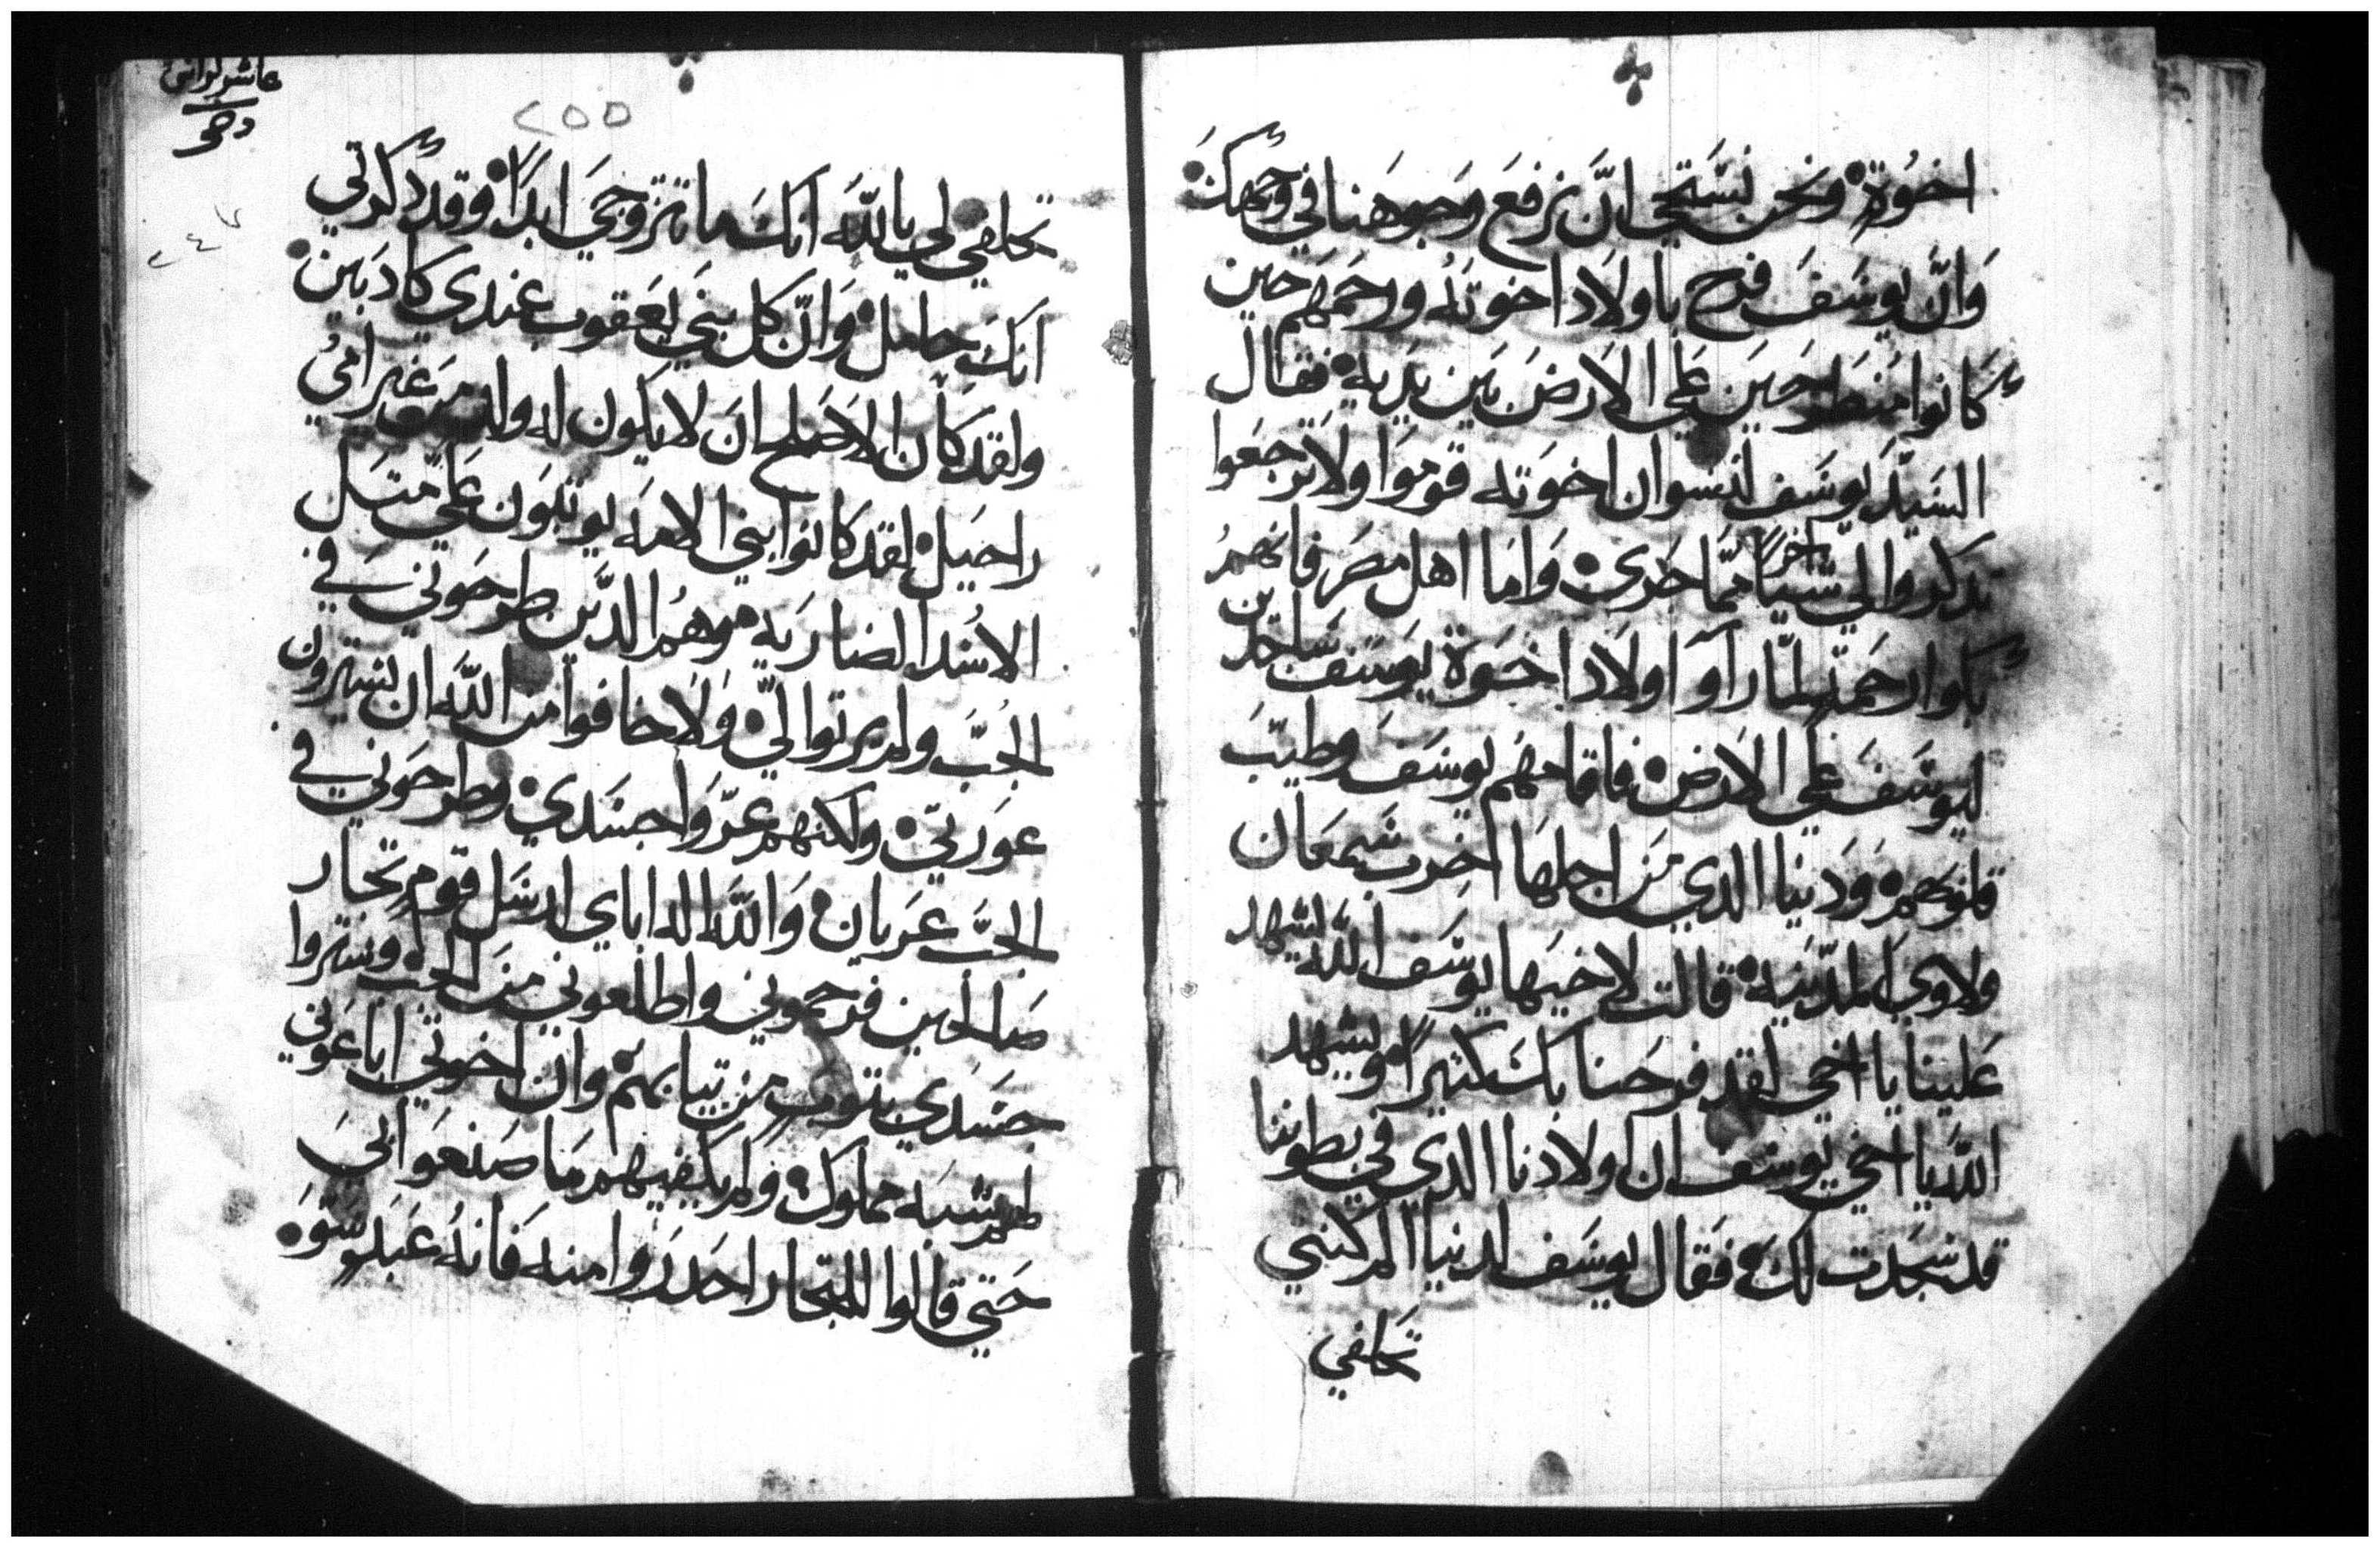 اخوُة ونحن نستحي انّ نرفعَ وَجوهَنا في وجهكَ
وَانَّ يوسَفَ فرح باولَاد اخوتهُ ورحمَهم حين
كانوا منطرَحينَ على الارضَ بَين يدَيه فقال
السَيدَ يوسَف لنسوان اخوَته قوموَا ولَا ترجعَوا
تدكروا لي شياً اخراً ممّا جَرى وَاما اهل مصَر فانهمُ
بكوا رحمَة لمّا راوَا اولَاد اخوَة يوسَف ساجدين
ليوسَفَ على الارضَ فاقامهُم يوسَفَ وطيبَ
قلوبَهم وَدَنيا الدي منَ اجلهَا اخرب شمعَان
ولاوي المدّينَة قالت لاخيَها يوسَف اللّه يشهد
عَلينا يا اخي لقد فرحَنا بكَ كثيراً ويشهد
اللّه يا اخي يوسَف ان اولادنا الدي في بطوننا
قد سَجدَت لكَ فقال يوسَف لدنيا الم كنتي
تحلفي
عاشر لوانى
دهى
٢٥٥
٢٤٧
تحلفي لي باللّه انكَ ما تتزوجي ابداً وقد دكرتي
انكَ حامل وَانّ كل بني يعَقوب عندي كادبَين
ولقد كان الاصَلح انَ لا يكون له ولد منَ غير امي
راحيَل لقد كانوا بني الامَه يوتبَون علىّ متل
الاسُد الضاريَه وهمُ الدّين طرحَوني في
الجُبَّ ولم يرتوا لي وَلَا خافوا من اللّه ان يسترون
عوَرتي ولكنهم عرّوَا جسَدي وطرحوَني في
الجبَّ عَريان وَاللّه اله اباي ارسَل قوم تجار
صَالحين فرحموني واطلعوني منَ الجب وسَتروا
جسَدي بتوب من تيابهَم وان اخوتي اباعَوني
لهم شبَه مملوك ولم يكفيهم مَا صَنعَوا بيَ
حَتي قالوا للتجار احدَروا منه فانهُ عَبدَ سَوَ